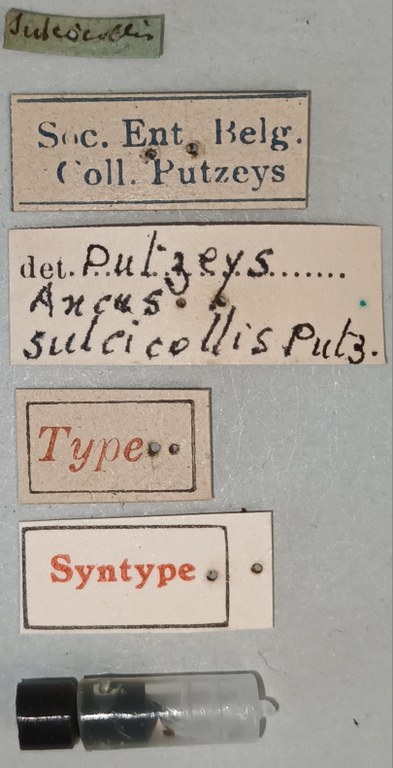 sulcicollis
Soc. Ent. Belg.
Coll. Putzeys
det. Putzeys.......
Ancus
sulcicollis Putz.
Type
Syntype